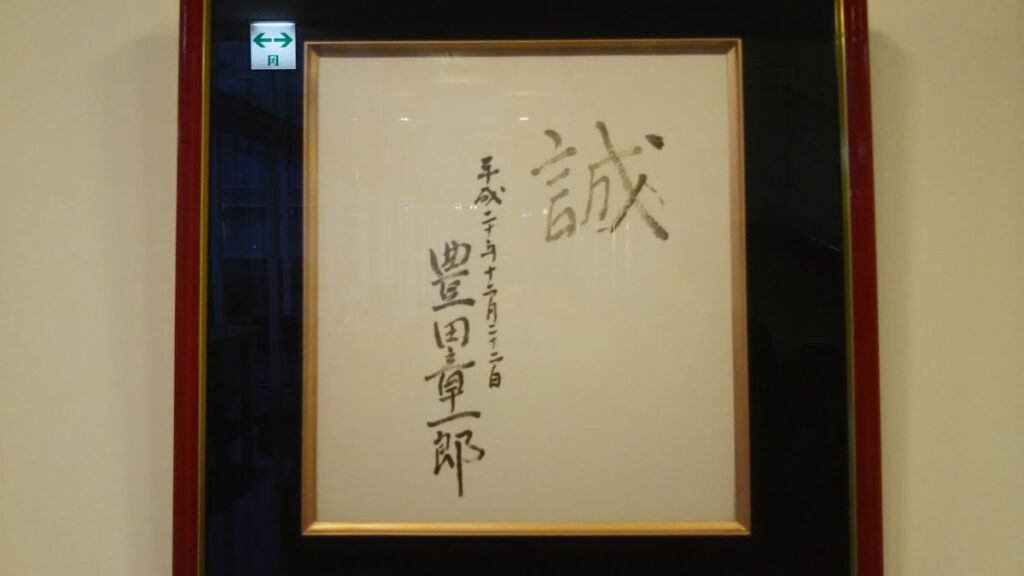 誠
平成二十年十二月二十二日
豊田章一郎